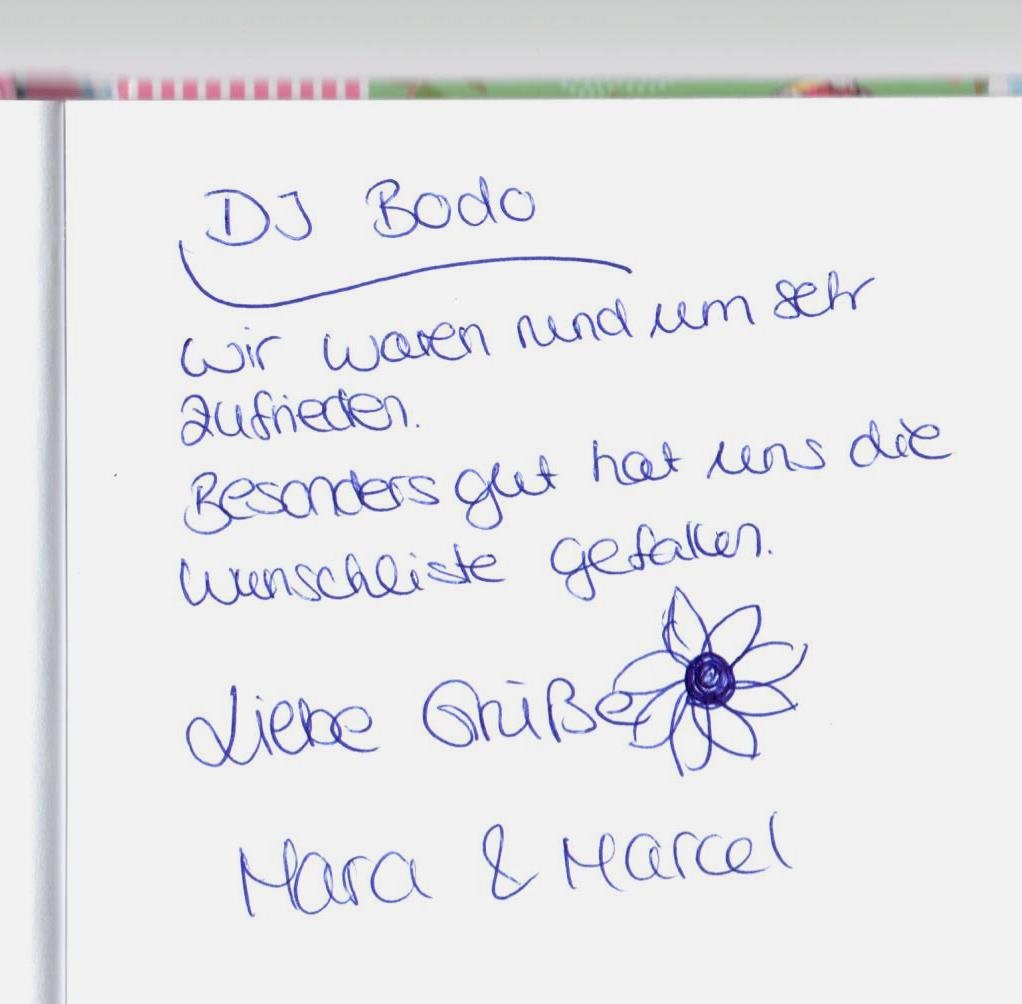 DJ Bodo
Wir waren rund um sehr
zufrieden.
Besonders gut hat uns die
Wunschliste gefallen.
Liebe Grüße
Mara & Marcel